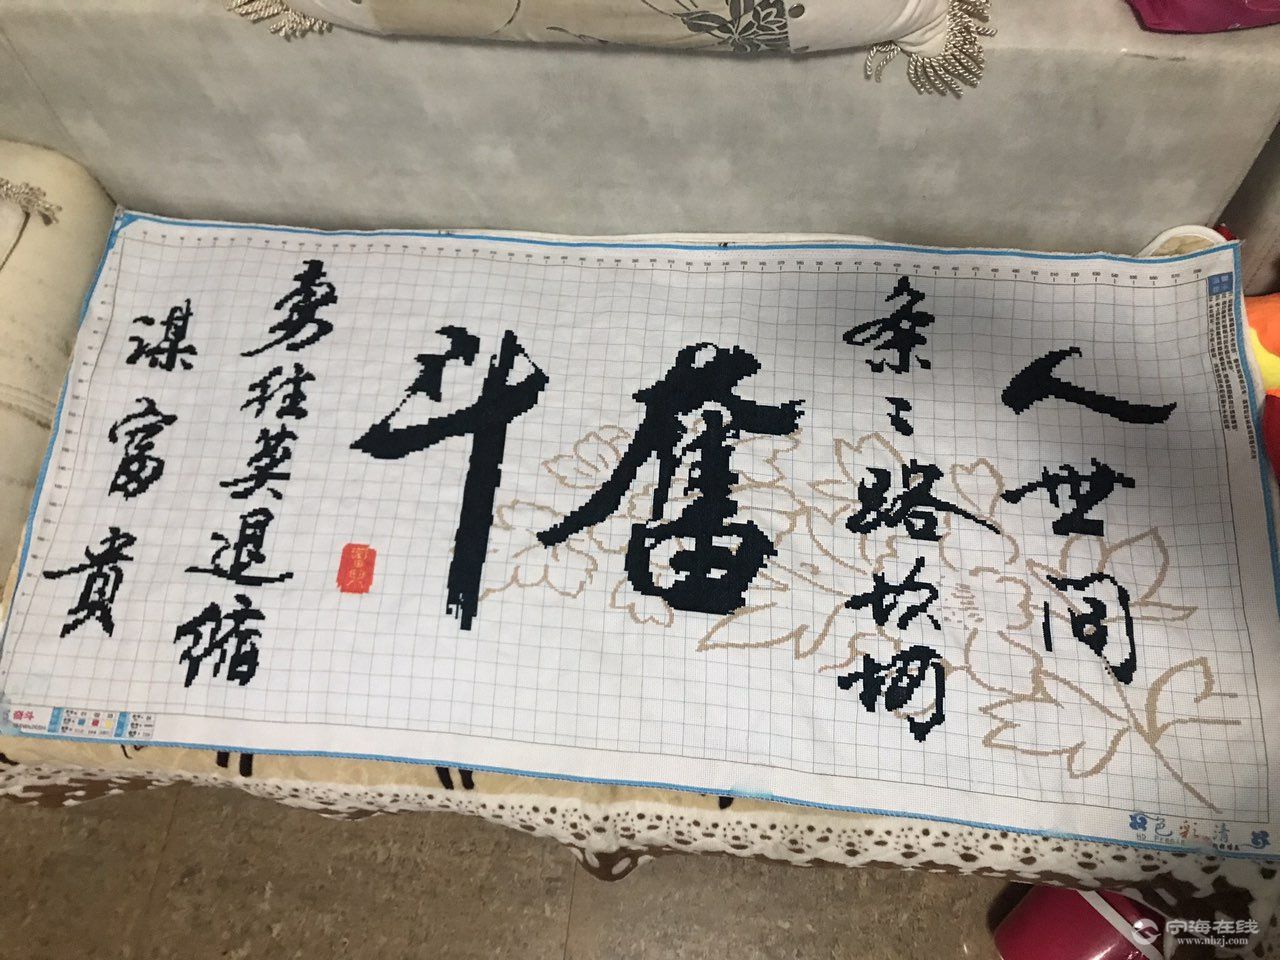 人世间
条々路坎坷
奮斗
勇往莫退缩
谋富贵
奋斗
色彩清
宁海在线
www.nhzj.com